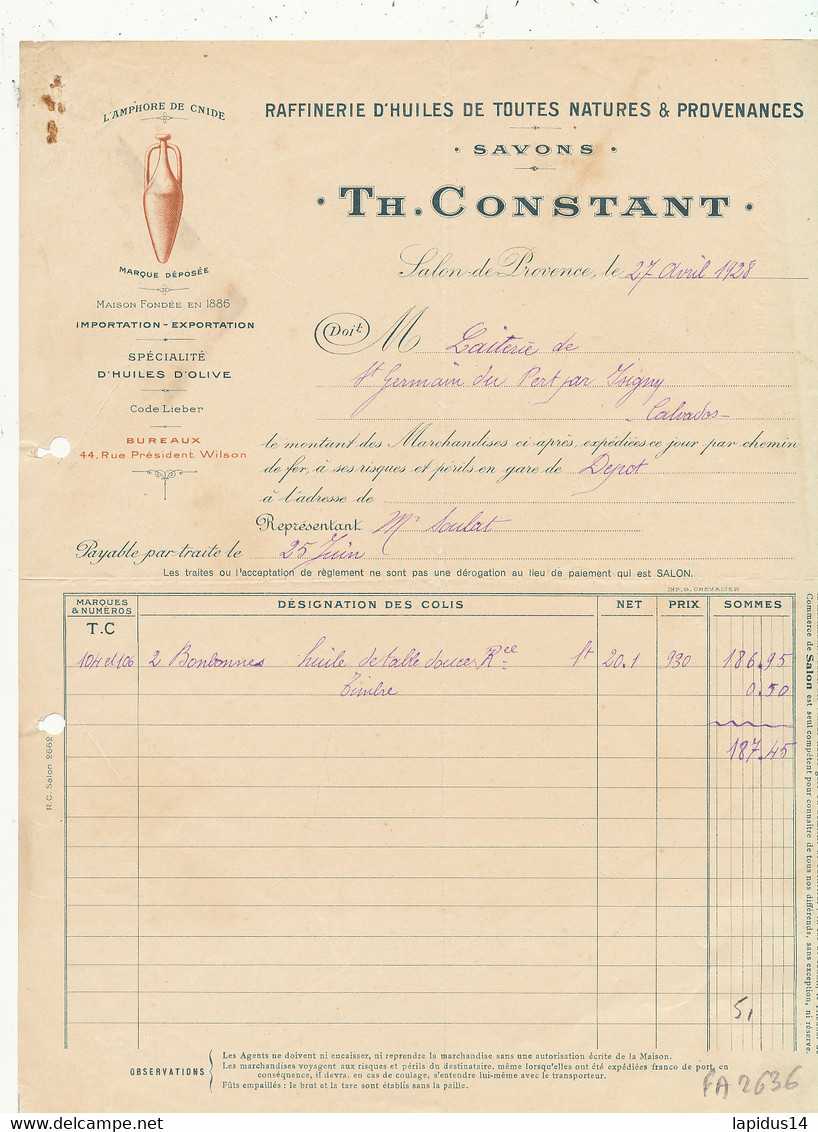 L'AMPHORE DE CNIDE
MARQUE DÉPOSÉE
MAISON FONDÉE EN 1885
IMPORTATION - EXPORTATION
SPÉCIALITÉ
D'HUILES D'OLIVE
Code Lieber
BUREAUX
44, Rue Président Wilson
RAFFINERIE D'HUILES DE TOUTES NATURES & PROVENANCES
• SAVONS •
• TH. CONSTANT •
Salon-de-Provence, le 27 avril 1928
Doit M Laiterie de
St Germain du Pert par Isigny
- Calvados -
le montant des Marchandises ci-après, expédiées ce jour par chemin
de fer, à ses risques et périls en gare de Depot
à l'adresse de
Représentant Mr Soulat
Payable par traite le 25 Juin
Les traites ou l'acceptation de règlement ne sont pas une dérogation au lieu de paiement qui est SALON.
IMP. G. CHEVALIER
MARQUES & NUMÉROS DÉSIGNATION DES COLIS NET PRIX SOMMES
T.C
104 et 106 2 Bonbonnes huile de table douce Rce 20.1 930 186.95
Timbre 0.50
187.45
R.C. Salon 2662
Commerce de Salon est seul compétent pour connaître de tous nos différends, sans exception, ni réserve.
51
OBSERVATIONS
Les Agents ne doivent ni encaisser, ni reprendre la marchandise sans une autorisation écrite de la Maison.
Les marchandises voyagent aux risques et périls du destinataire, même lorsqu'elles ont été expédiées franco de port, en
conséquence, il devra, en cas de coulage, s'entendre lui-même avec le transporteur.
Fûts empaillés : le brut et la tare sont établis sans la paille.
FA 2636
lapidus14